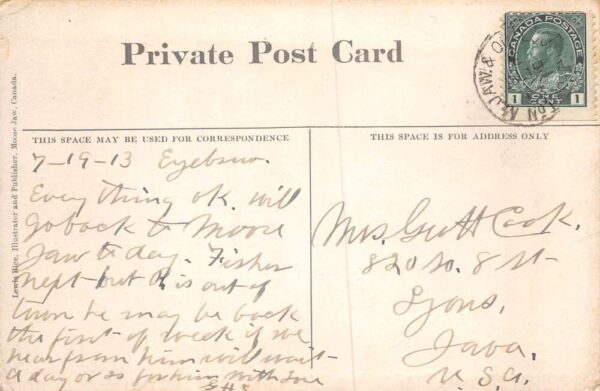 Private Post Card
CANADA POSTAGE
1 ONE CENT 1
M.JAW. &
THIS SPACE MAY BE USED FOR CORRESPONDENCE
THIS SPACE IS FOR ADDRESS ONLY
Lewis Rice, Illustrator and Publisher, Moose Jaw, Canada.
7-19-13 Eyebrow.
Everything ok. will
go back to Moose
Jaw to day. Fisher
wept but is out of
town he may be back
the first of week if we
hear from him will wait
a day or so for him with Love
Mrs. Scott Cook.
820 So. 8 St-
Lyons,
Iowa,
U.S.A.